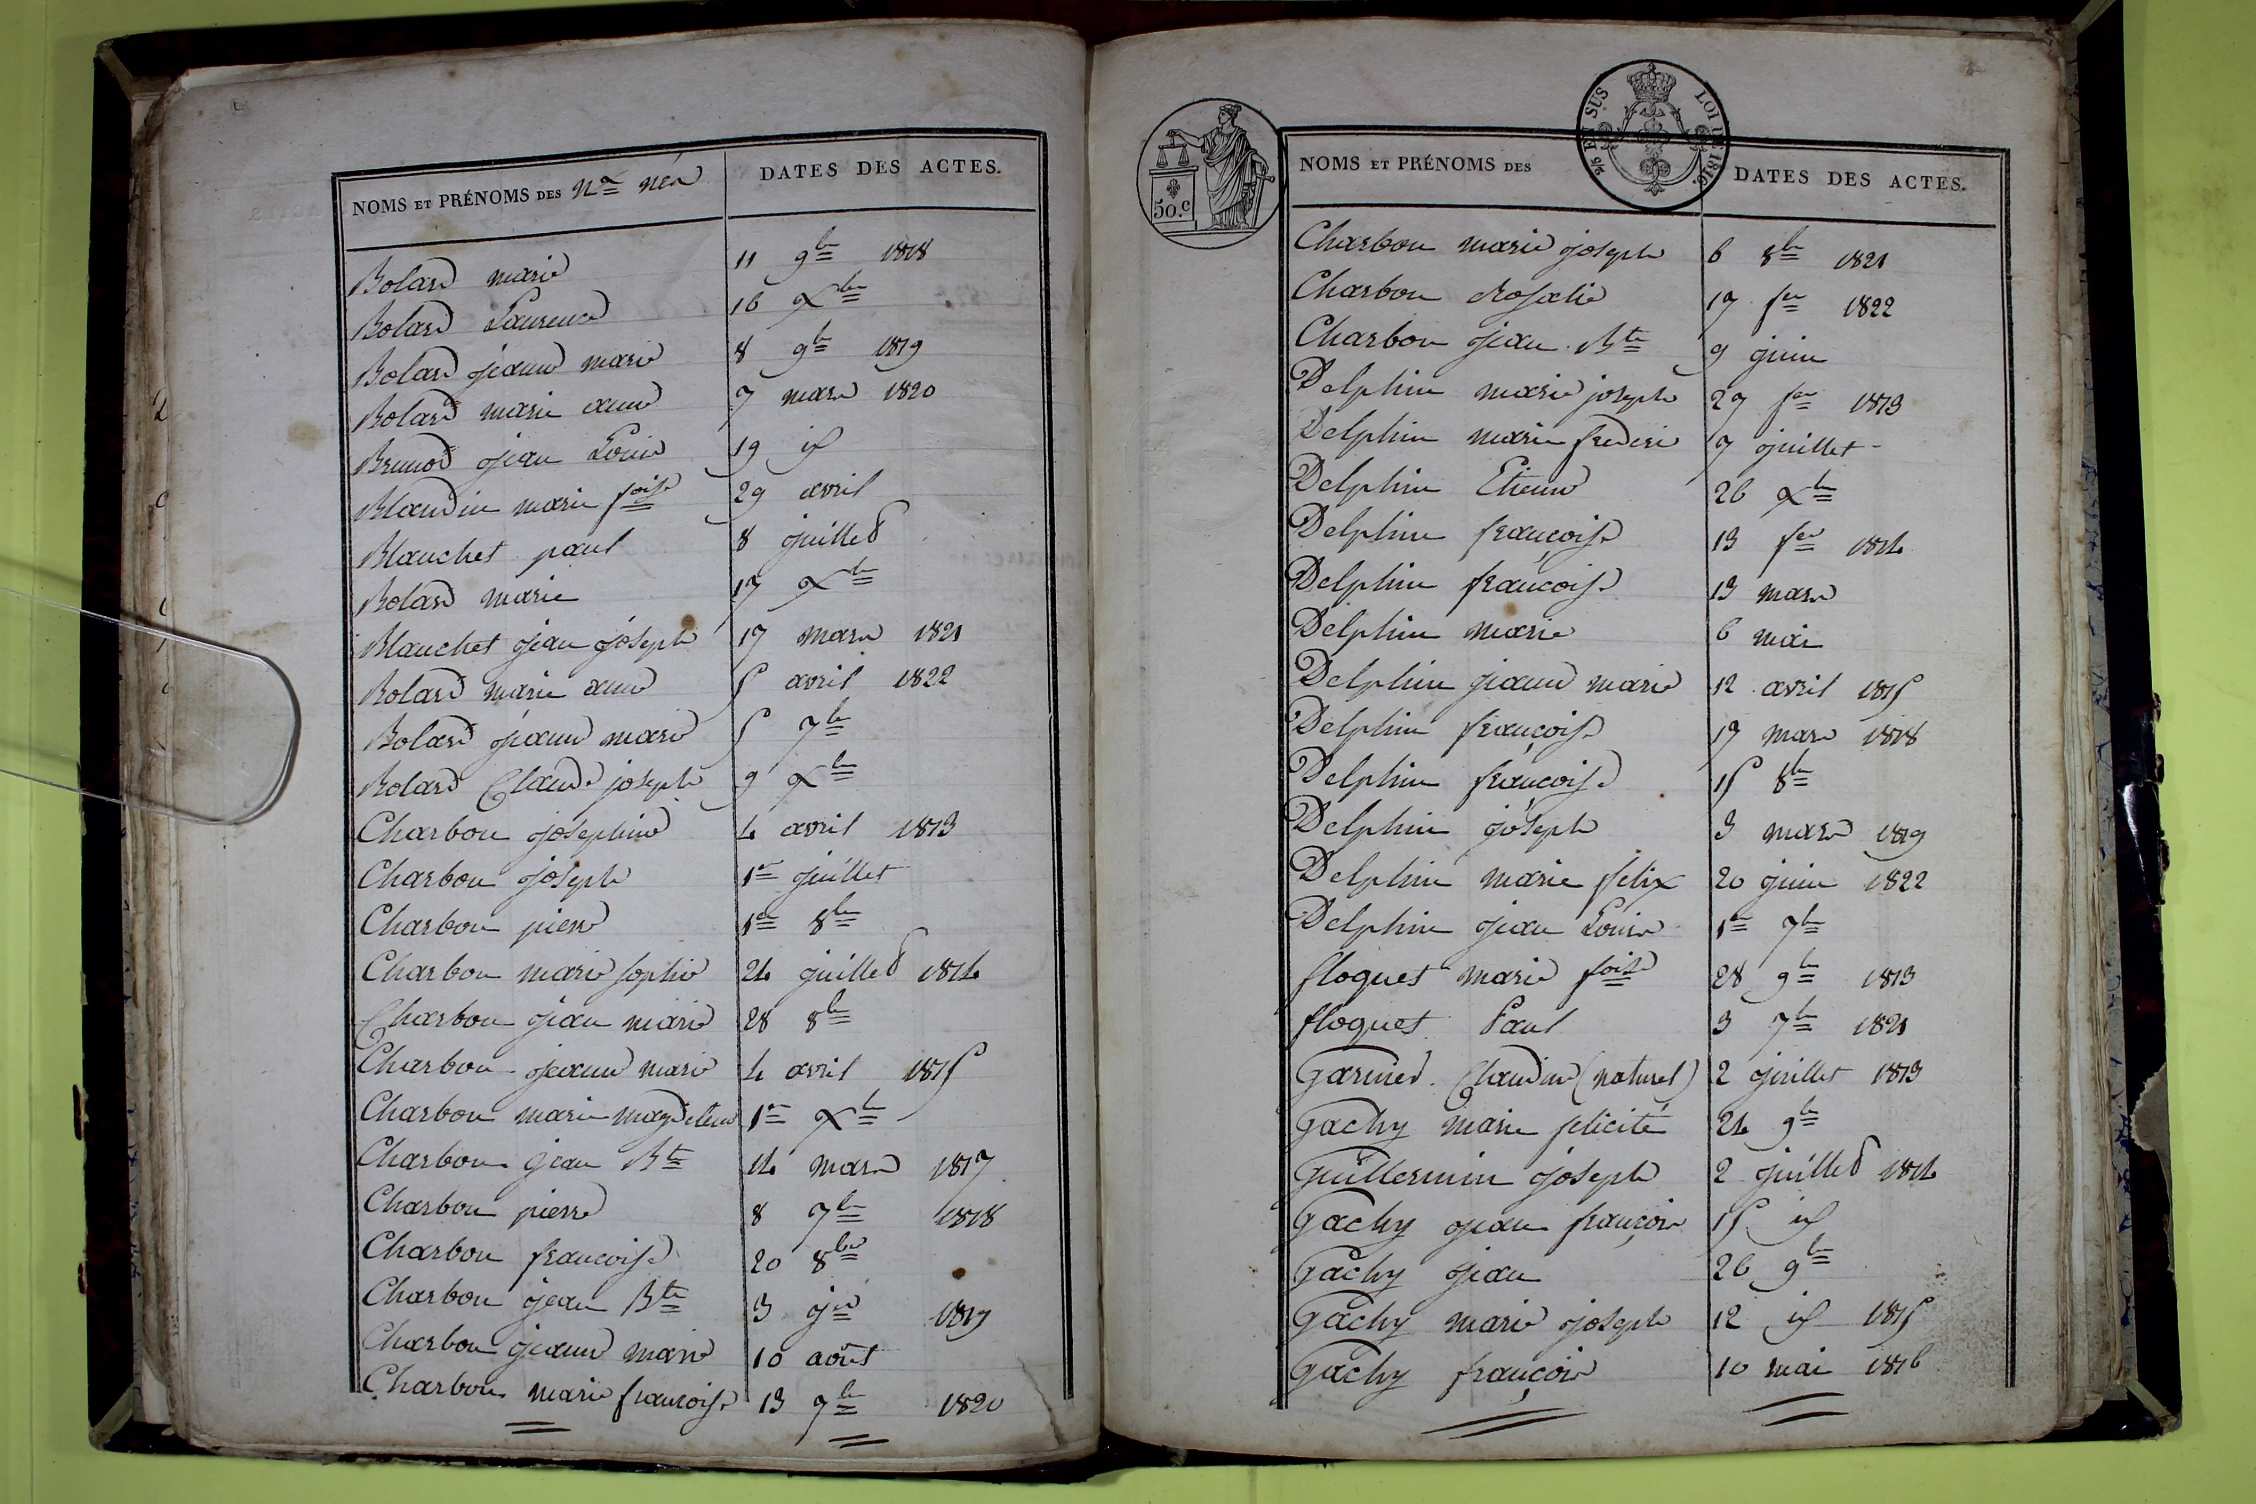 NOMS ET PRÉNOMS DES Nx nés DATES DES ACTES.
Bolard marie 11 9bre 1818
Bolard Laurence 16 Xbre
Bolard jeanne marie 8 9bre 1819
Bolard marie anne 7 mars 1820
Brunod jean Louis 19 id
Blandin marie foise 29 avril
Blanchet paul 8 juillet
Bolard marie 17 Xbre
Blanchet jean joseph 17 mars 1821
Bolard marie anne 5 avril 1822
Bolard jeanne marie 5 7bre
Bolard Claude joseph 9 Xbre
Charbon josephine 4 avril 1813
Charbon joseph 1er juillet
Charbon pierre 1er 8bre
Charbon marie sophie 24 juillet 1814
Charbon jean marie 28 8bre
Charbon jeanne marie 4 avril 1815
Charbon marie magdeleine 1er Xbre
Charbon jean Bte 14 mars 1817
Charbon pierre 8 7bre 1818
Charbon francoise 20 8bre
Charbon jean Bte 3 jer 1819
Charbon jeanne marie 10 août
Charbon marie francoise 13 9bre 1820
50.c
2/5 EN SUS LOI DE 1816.
NOMS ET PRÉNOMS DES DATES DES ACTES.
Charbon marie joseph 6 8bre 1821
Charbon Rosalie 17 fer 1822
Charbon jean Bte 9 juin
Delphin marie joseph 27 fer 1813
Delphin marie frederic 7 juillet
Delphin Etienne 26 Xbre
Delphin françoise 13 fer 1814
Delphin françoise 13 mars
Delphin marie 6 mai
Delphin jeanne marie 12 avril 1815
Delphin françoise 17 mars 1818
Delphin françoise 15 8bre
Delphin joseph 3 mars 1819
Delphin marie felix 20 juin 1822
Delphin jean Louis 1er 7bre
floquet marie foise 28 9bre 1813
floquet Paul 3 7bre 1821
Garnier Claudine (naturel) 2 juillet 1813
Gachy marie felicité 24 9bre
Guillermin joseph 2 juillet 1814
Gachy jean françois 15 id
Gachy jean 26 9bre
Gachy marie joseph 12 id 1815
Gachy françois 10 mai 1816